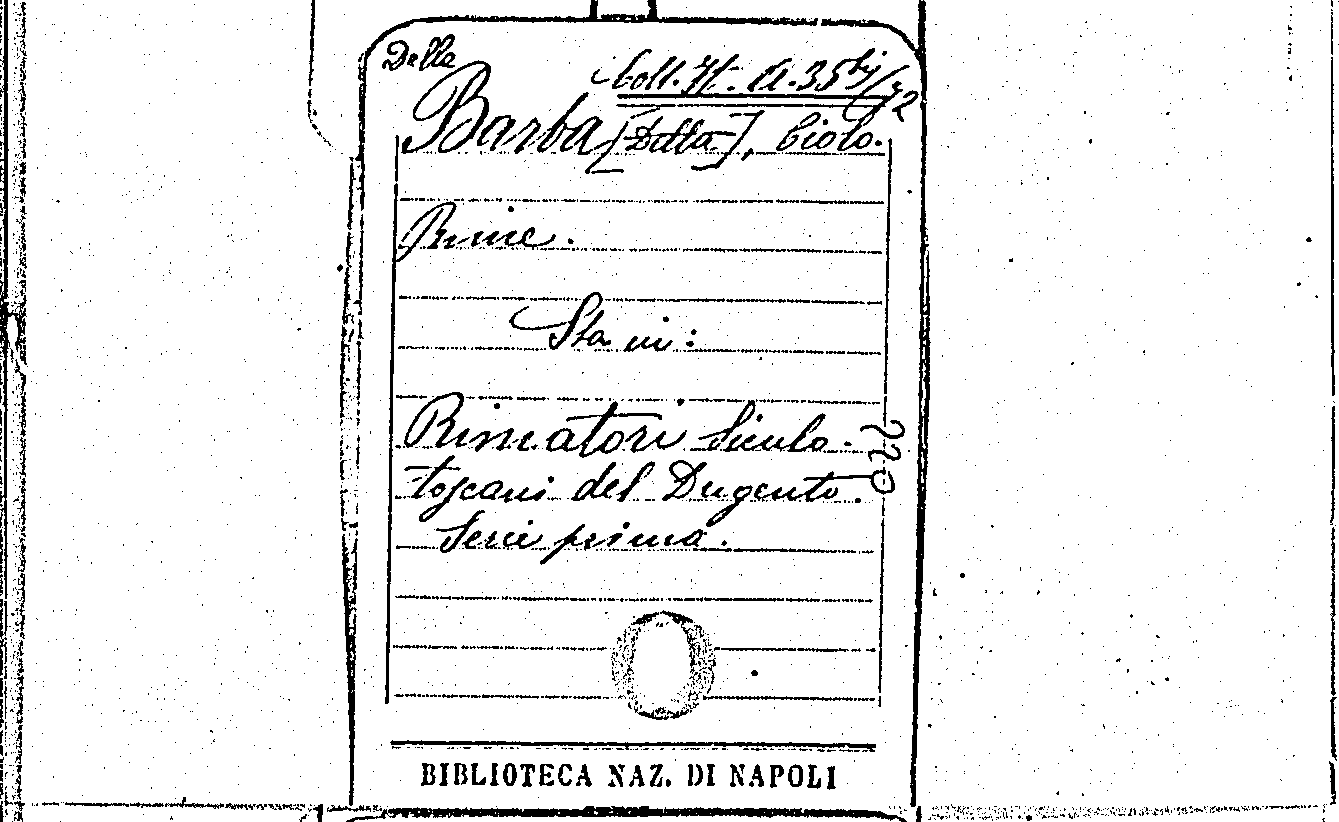 Della
Coll. It. A. 35 bis/72
Barba [Della], Ciolo.
Rime.
Sta in:
Rimatori siculo-
toscani del Dugento.
Serie prima.
220
BIBLIOTECA NAZ. DI NAPOLI